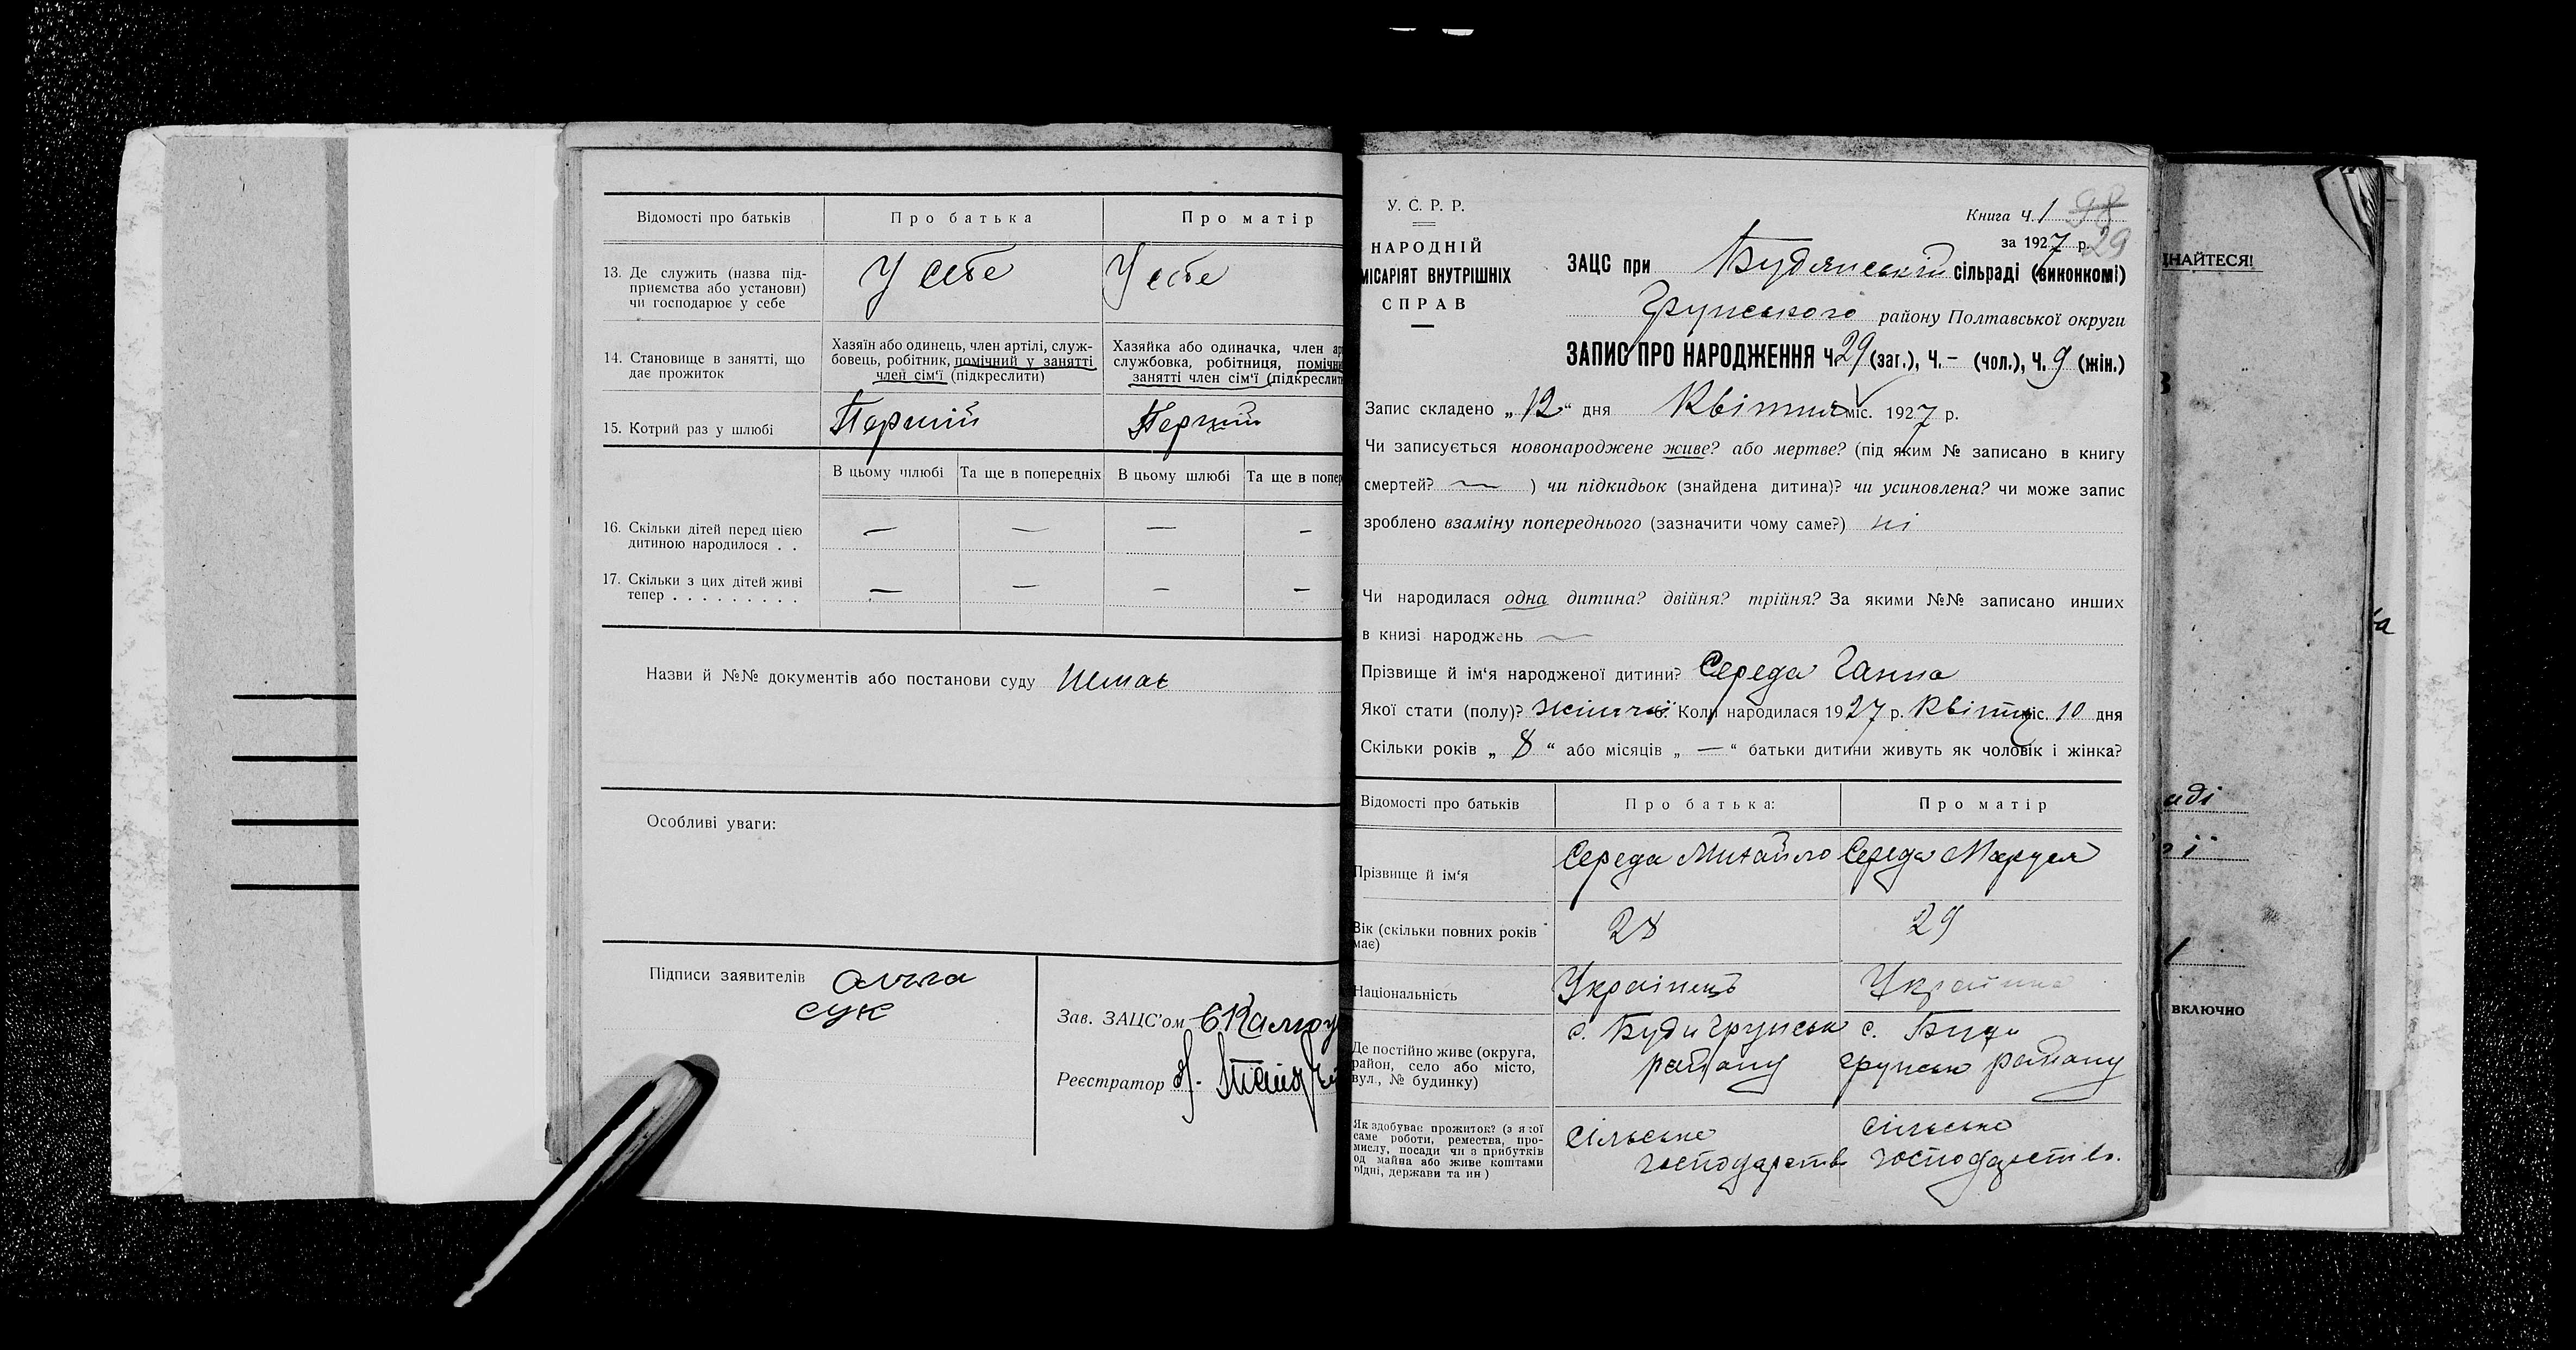 Відомості про батьків
Про батька
Про матір
13. Де служить (назва під-
приємства або установи)
чи господарює у себе
У себе
У себе
14. Становище в занятті, що
дає прожиток
Хазяїн або одинець, член артілі, служ-
бовець, робітник, помічний у занятті
член сім'ї (підкреслити)
Хазяйка або одиначка, член ар
службовка, робітниця, помічн
занятті член сім'ї (підкреслит
15. Котрий раз у шлюбі
Перший
Перший
В цьому шлюбі
Та ще в попередніх
В цьому шлюбі
Та ще в попер
16. Скільки дітей перед цією
дитиною народилося . .
— — — -
17. Скільки з цих дітей живі
тепер . . . . . . . . .
— — — —
Назви й №№ документів або постанови суду Немає
Особливі уваги:
Підписи заявителів
сук
Зав. ЗАЦС'ом
Реєстратор
У. С. Р. Р.
НАРОДНІЙ
МІСАРІЯТ ВНУТРІШНІХ
СПРАВ
Книга Ч. 1 98
за 1927 р. 29
ЗАЦС при Будянській сільраді (виконкомі)
Грунського району Полтавської округи
ЗАПИС ПРО НАРОДЖЕННЯ Ч. 29 (заг.), Ч. – (чол.), Ч. 9 (жін.)
Запис складено „ 12 “ дня Квітня міс. 1927 р.
Чи записується новонароджене живе? або мертве? (під яким № записано в книгу
смертей? — ) чи підкидьок (знайдена дитина)? чи усиновлена? чи може запис
зроблено взаміну попереднього (зазначити чому саме?) ні
Чи народилася одна дитина? двійня? трійня? За якими №№ записано инших
в книзі народжень —
Прізвище й ім'я народженої дитини? Середа Ганна
Якої стати (полу)? жіночої Коли народилася 1927 р. Квітня міс. 10 дня
Скільки років „ 8 “ або місяців „ — “ батьки дитини живуть як чоловік і жінка?
Відомості про батьків
Про батька:
Про матір
Прізвище й ім'я
Середа Михайло
Середа Маруся
Вік (скільки повних років
має)
28
29
Національність
Українець
Українка
Де постійно живе (округа,
район, село або місто,
вул., № будинку)
с. Буди Грунськ
району
с. Буди
грунськ району
Як здобуває прожиток? (з якої
саме роботи, ремества, про-
мислу, посади чи з прибутків
од майна або живе коштами
рідні, держави та ин)
Сільське
господарств
сільське
господарство.
ДНАЙТЕСЯ!
ВКЛЮЧНО